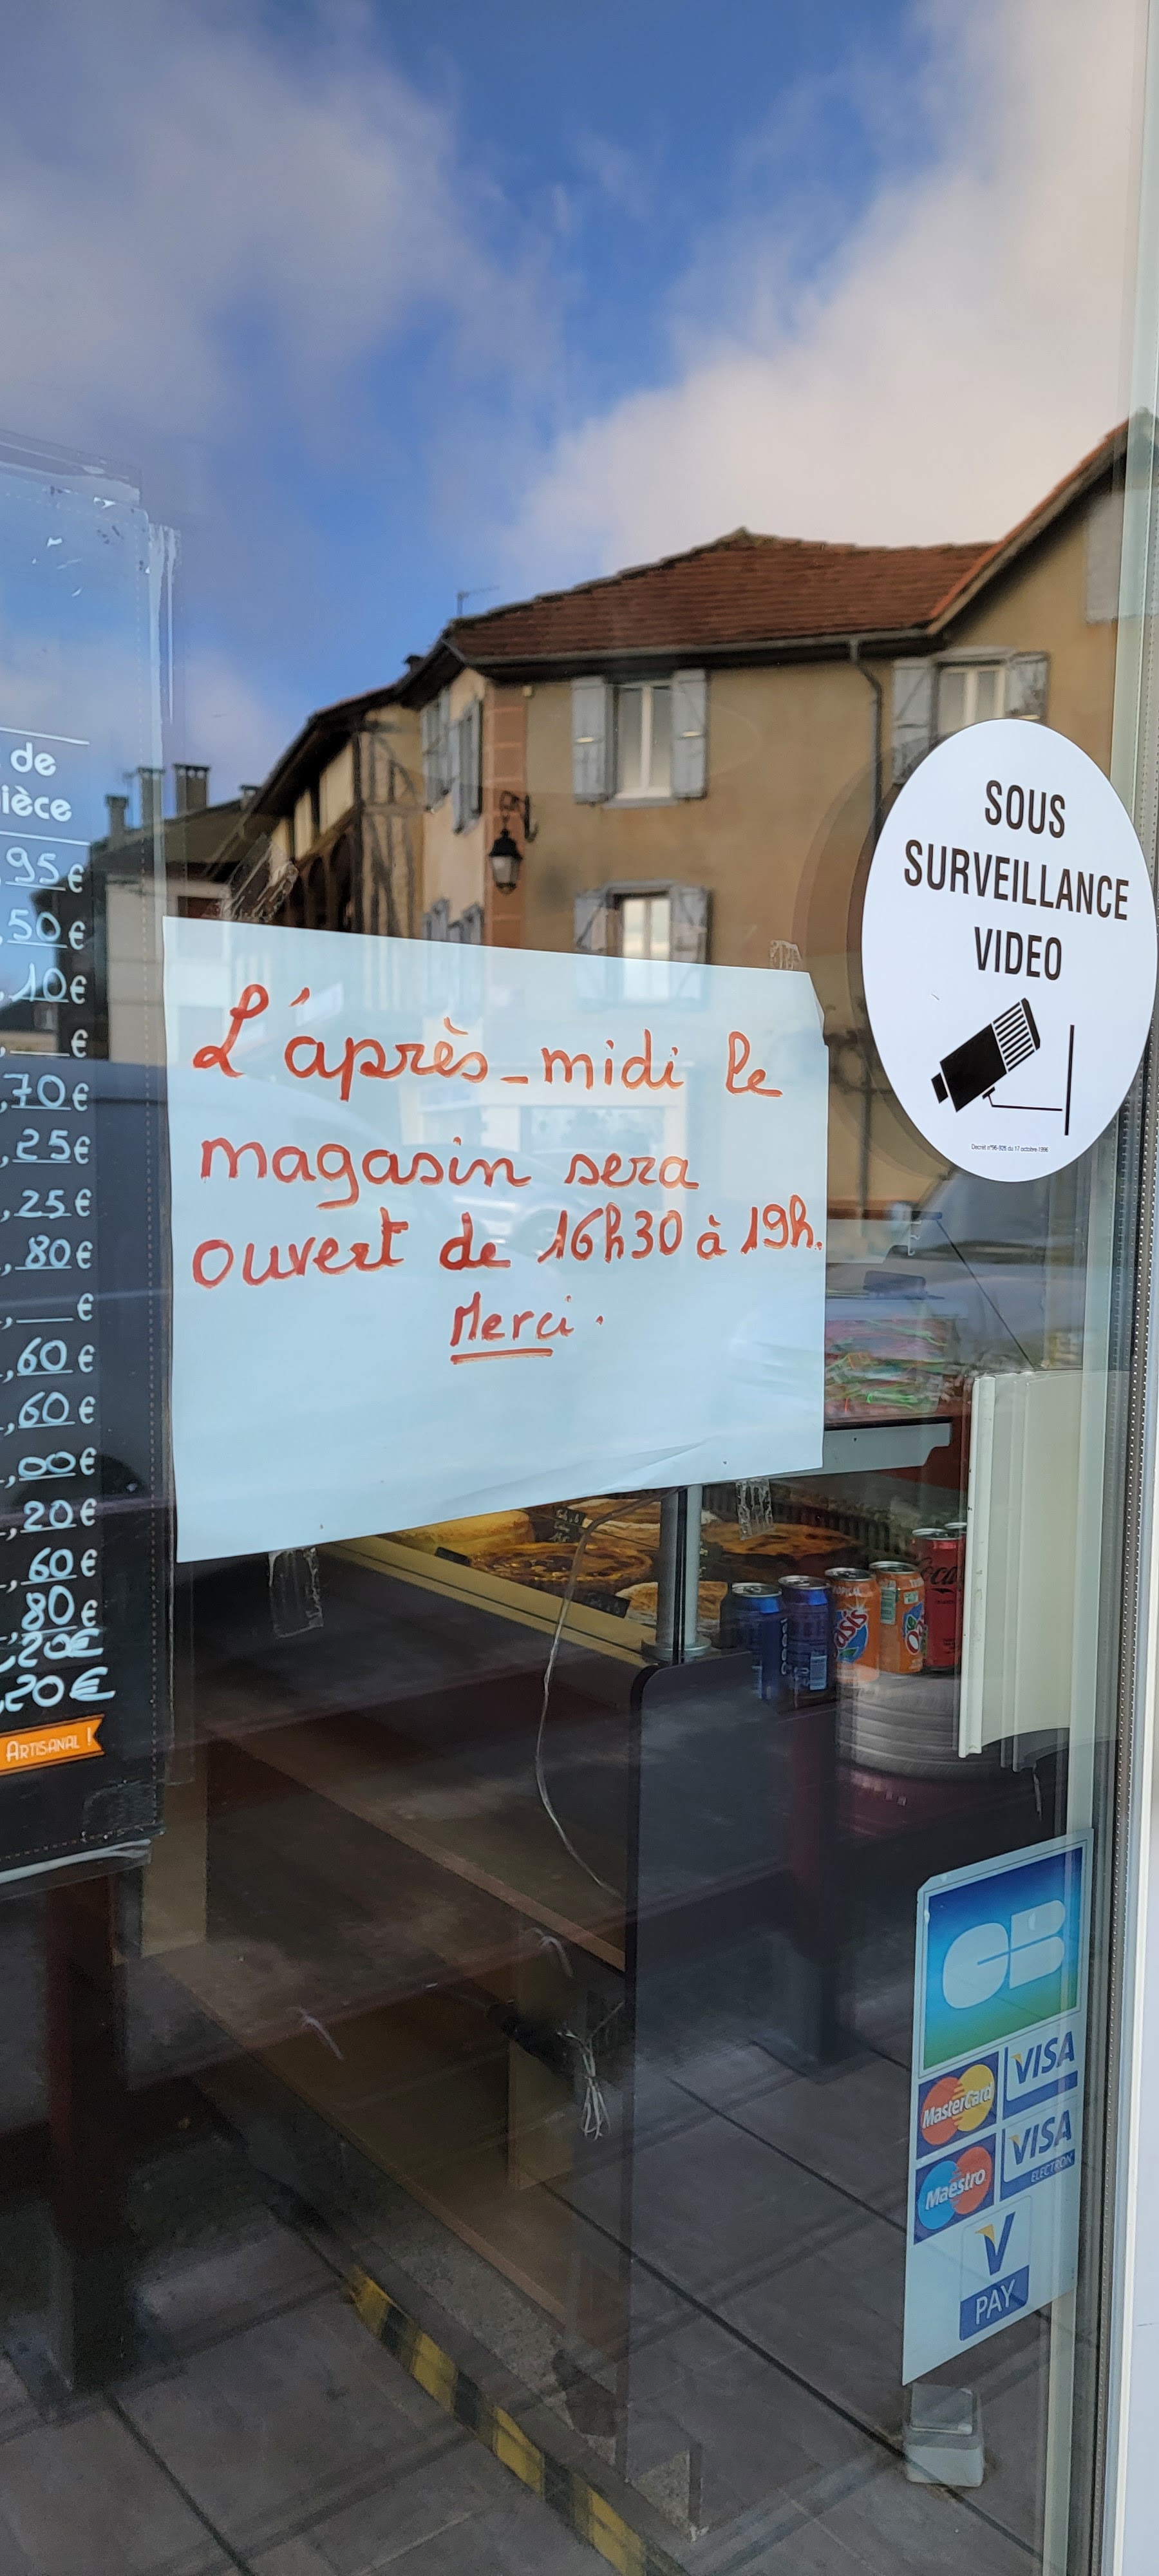 de
ièce
,95€
,50€
,10€
,__€
,70€
,25€
,25€
,80€
,__€
,60€
,60€
,00€
,20€
,60€
,80€
,20€
,20€
ARTISANAL !
L'après-midi le
magasin sera
ouvert de 16h30 à 19h.
Merci.
SOUS
SURVEILLANCE
VIDEO
Décret n°96-926 du 17 octobre 1996
Oasis
CB
MasterCard VISA
Maestro VISA
ELECTRON
V
PAY